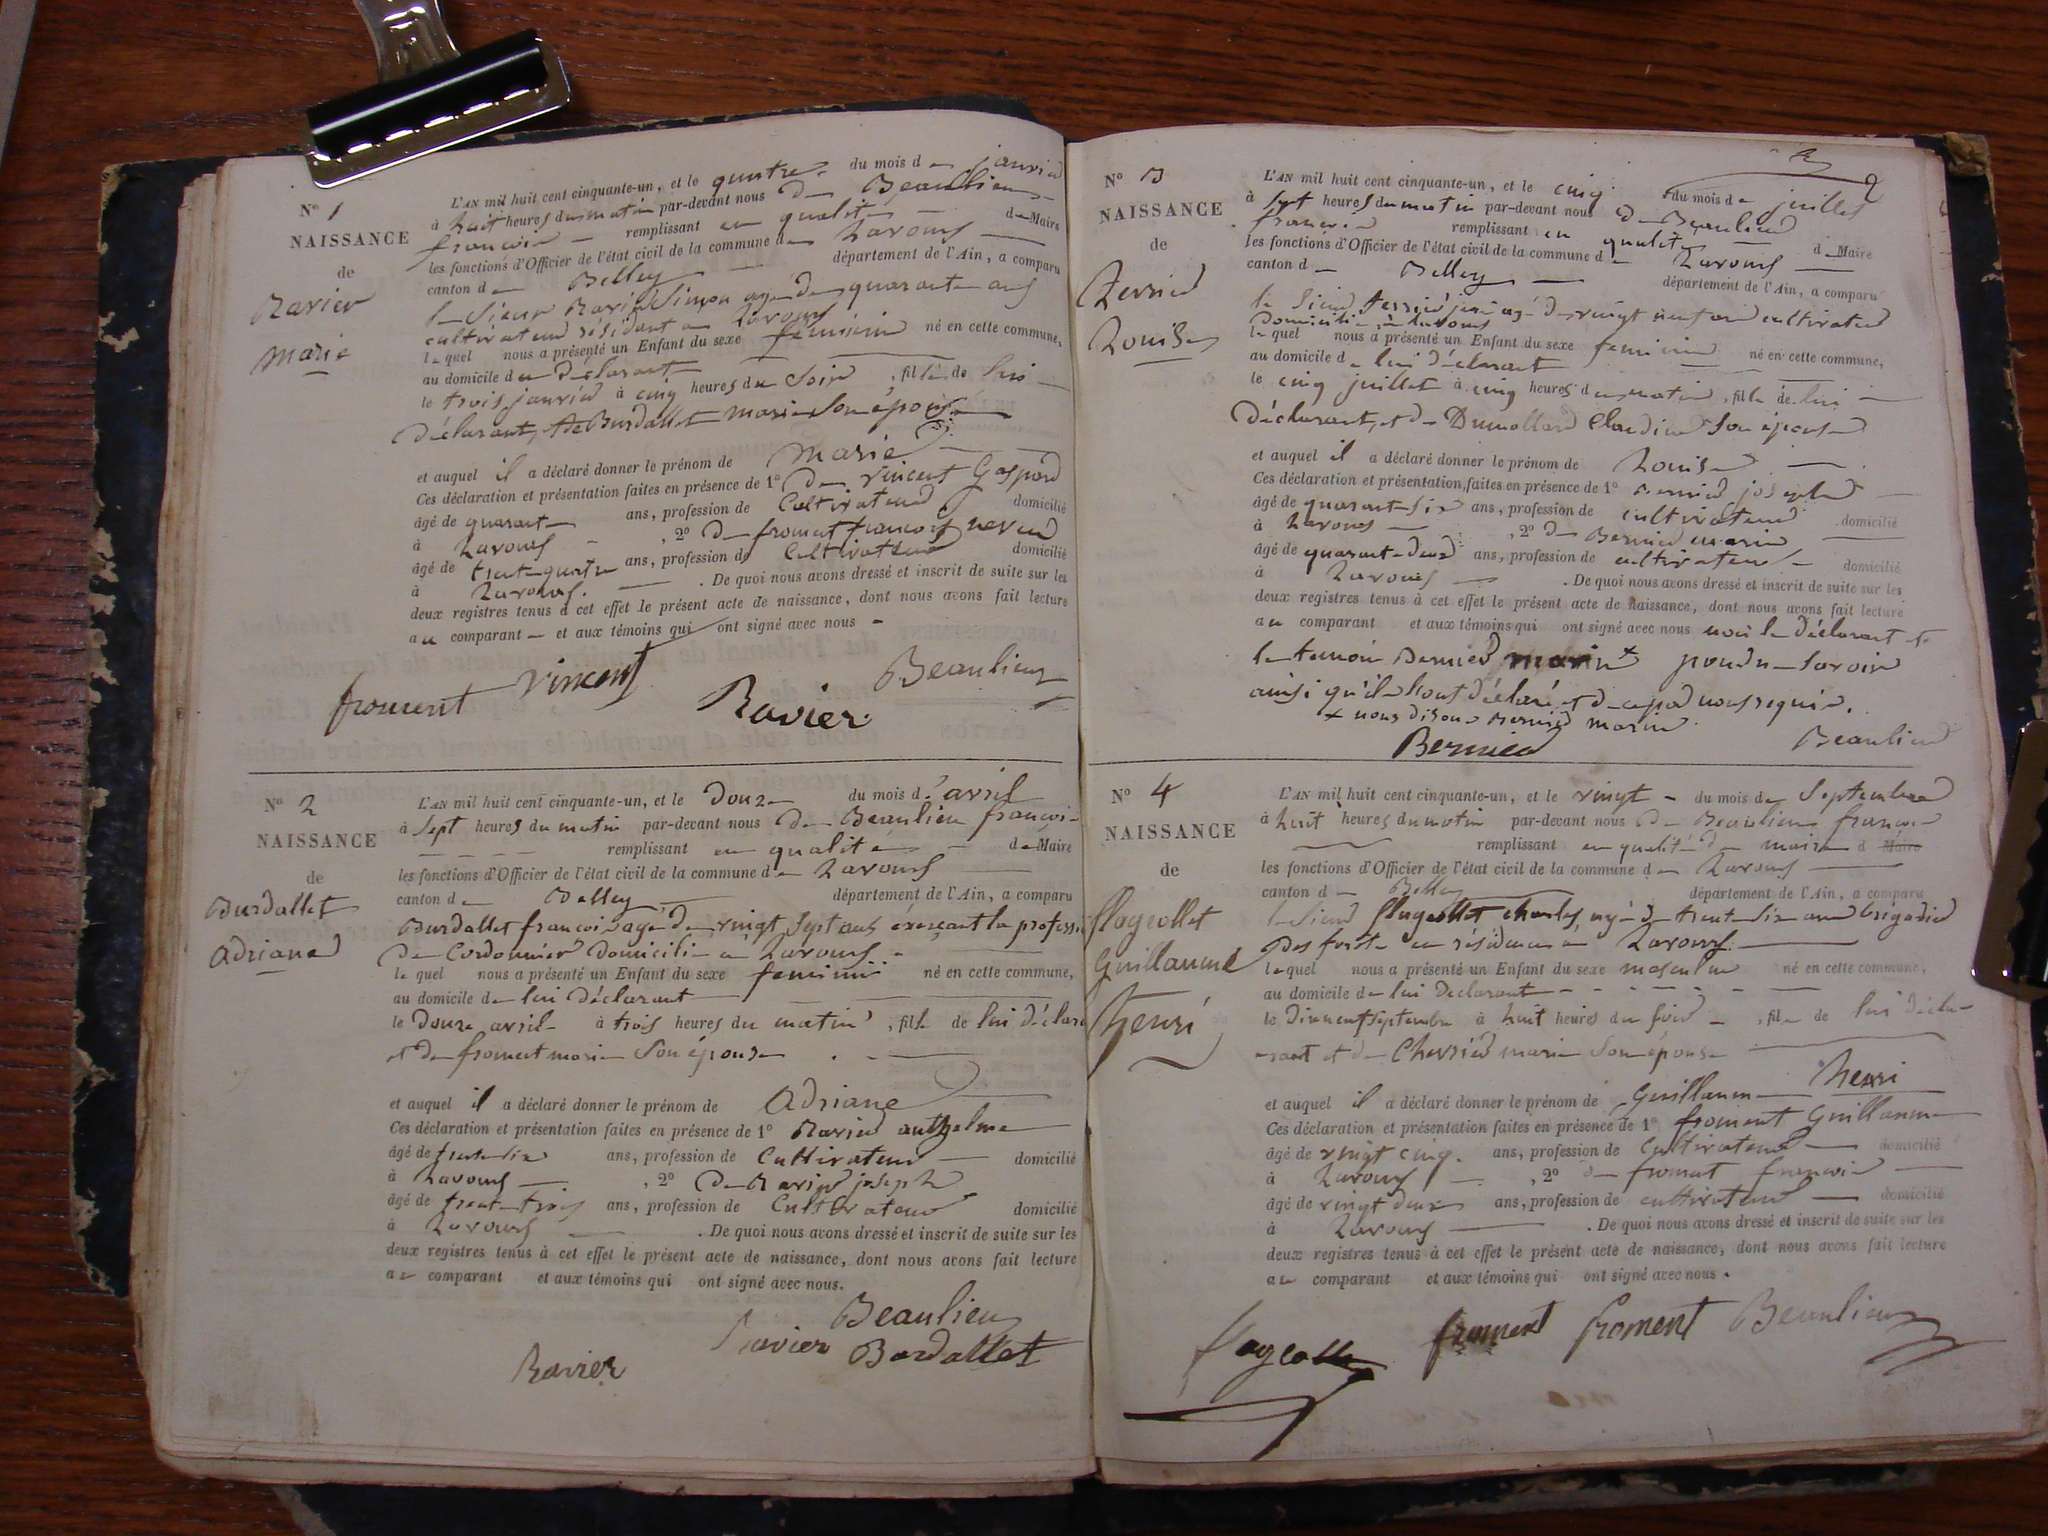 N° 1
NAISSANCE
de
Ravier
Marie
L'AN mil huit cent cinquante-un, et le quatre du mois de janvier
à huit heures du matin par-devant nous De Beaulieu
françois remplissant en qualité de Maire
les fonctions d'Officier de l'état civil de la commune de Lavours
canton de Belley département de l'Ain, a comparu
le Sieur Ravier Simon agé de quarante ans
cultivateur résidant a Lavours
lequel nous a présenté un Enfant du sexe féminin né en cette commune,
au domicile du déclarant
le trois janvier à cinq heures du soir, fille de lui
déclarant, et de Burdallet marie son épouse
et auquel il a déclaré donner le prénom de Marie
Ces déclaration et présentation faites en présence de 1° De Vincent Gaspard
âgé de quarante ans, profession de Cultivateur domicilié
à Lavours, 2° De froment francois neveu
âgé de trente quatre ans, profession de Cultivateur domicilié
à Lavours. De quoi nous avons dressé et inscrit de suite sur les
deux registres tenus à cet effet le présent acte de naissance, dont nous avons fait lecture
au comparant et aux témoins qui ont signé avec nous
froment Vincent Ravier Beaulieu
N° 2
NAISSANCE
de
Burdallet
Adriane
L'AN mil huit cent cinquante-un, et le Douze du mois d'avril
à Sept heures du matin par-devant nous De Beaulieu françois
remplissant en qualité de Maire
les fonctions d'Officier de l'état civil de la commune de Lavours
canton de Belley département de l'Ain, a comparu
Burdallet francois agé de vingt sept ans exerçant la professi
De Cordonnier Domicilié a Lavours
lequel nous a présenté un Enfant du sexe feminin né en cette commune,
au domicile de lui déclarant
le Douze avril à trois heures du matin, fille de lui déclara
et de froment marie Son épouse
et auquel il a déclaré donner le prénom de Adriane
Ces déclaration et présentation faites en présence de 1° Ravier anthelme
âgé de trente six ans, profession de Cultivateur domicilié
à Lavours, 2° De Ravier joseph
âgé de trente trois ans, profession de Cultivateur domicilié
à Lavours. De quoi nous avons dressé et inscrit de suite sur les
deux registres tenus à cet effet le présent acte de naissance, dont nous avons fait lecture
au comparant et aux témoins qui ont signé avec nous.
Beaulieu
Ravier Ravier Bordallet
2
N° 3
NAISSANCE
de
Louise
L'AN mil huit cent cinquante-un, et le cinq du mois de juillet
à sept heures du matin par-devant nous de Beaulieu
francois remplissant en qualité de Maire
les fonctions d'Officier de l'état civil de la commune de Lavours
canton de Belley département de l'Ain, a comparu
le Sieur agé de vingt neuf ans cultivateur
Domicilié à Lavours
lequel nous a présenté un Enfant du sexe feminin né en cette commune,
au domicile de lui déclarant
le cinq juillet à cinq heures du matin, fille de lui
déclarant, et de Dumollard Claudine Son épouse
et auquel il a déclaré donner le prénom de Louise
Ces déclaration et présentation faites en présence de 1° Bernier joseph
âgé de quarante six ans, profession de cultivateur domicilié
à Lavours, 2° de Bernier marin
âgé de quarante deux ans, profession de cultivateur domicilié
à Lavours. De quoi nous avons dressé et inscrit de suite sur les
deux registres tenus à cet effet le présent acte de naissance, dont nous avons fait lecture
au comparant et aux témoins qui ont signé avec nous non le déclarant et
le temoin Bernier pour ne savoir
ainsi qu'ils l'ont déclaré et de ce par nous requis.
+ nous disons Bernier marin
Bernier Beaulieu
N° 4
NAISSANCE
de
flageollet
Guillaume
henri
L'AN mil huit cent cinquante-un, et le vingt du mois de Septembre
à huit heures du matin par-devant nous De Beaulieu françois
remplissant en qualité de maire d Maire
les fonctions d'Officier de l'état civil de la commune de Lavours
canton de Belley département de l'Ain, a comparu
le Sieur flageollet charles agé de trente six ans brigadier
Des forêts en résidence à Lavours
lequel nous a présenté un Enfant du sexe masculin né en cette commune,
au domicile de lui Declarant
le Dixneuf Septembre à huit heures du soir, fils de lui décla-
rant et de Chervier marie Son épouse
et auquel il a déclaré donner le prénom de Guillaume henri
Ces déclaration et présentation faites en présence de 1° froment Guillaume
âgé de vingt cinq ans, profession de Cultivateur domicilié
à Lavours, 2° de froment francois
âgé de vingt deux ans, profession de cultivateur domicilié
à Lavours. De quoi nous avons dressé et inscrit de suite sur les
deux registres tenus à cet effet le présent acte de naissance, dont nous avons fait lecture
au comparant et aux témoins qui ont signé avec nous.
flageollet froment froment Beaulieu